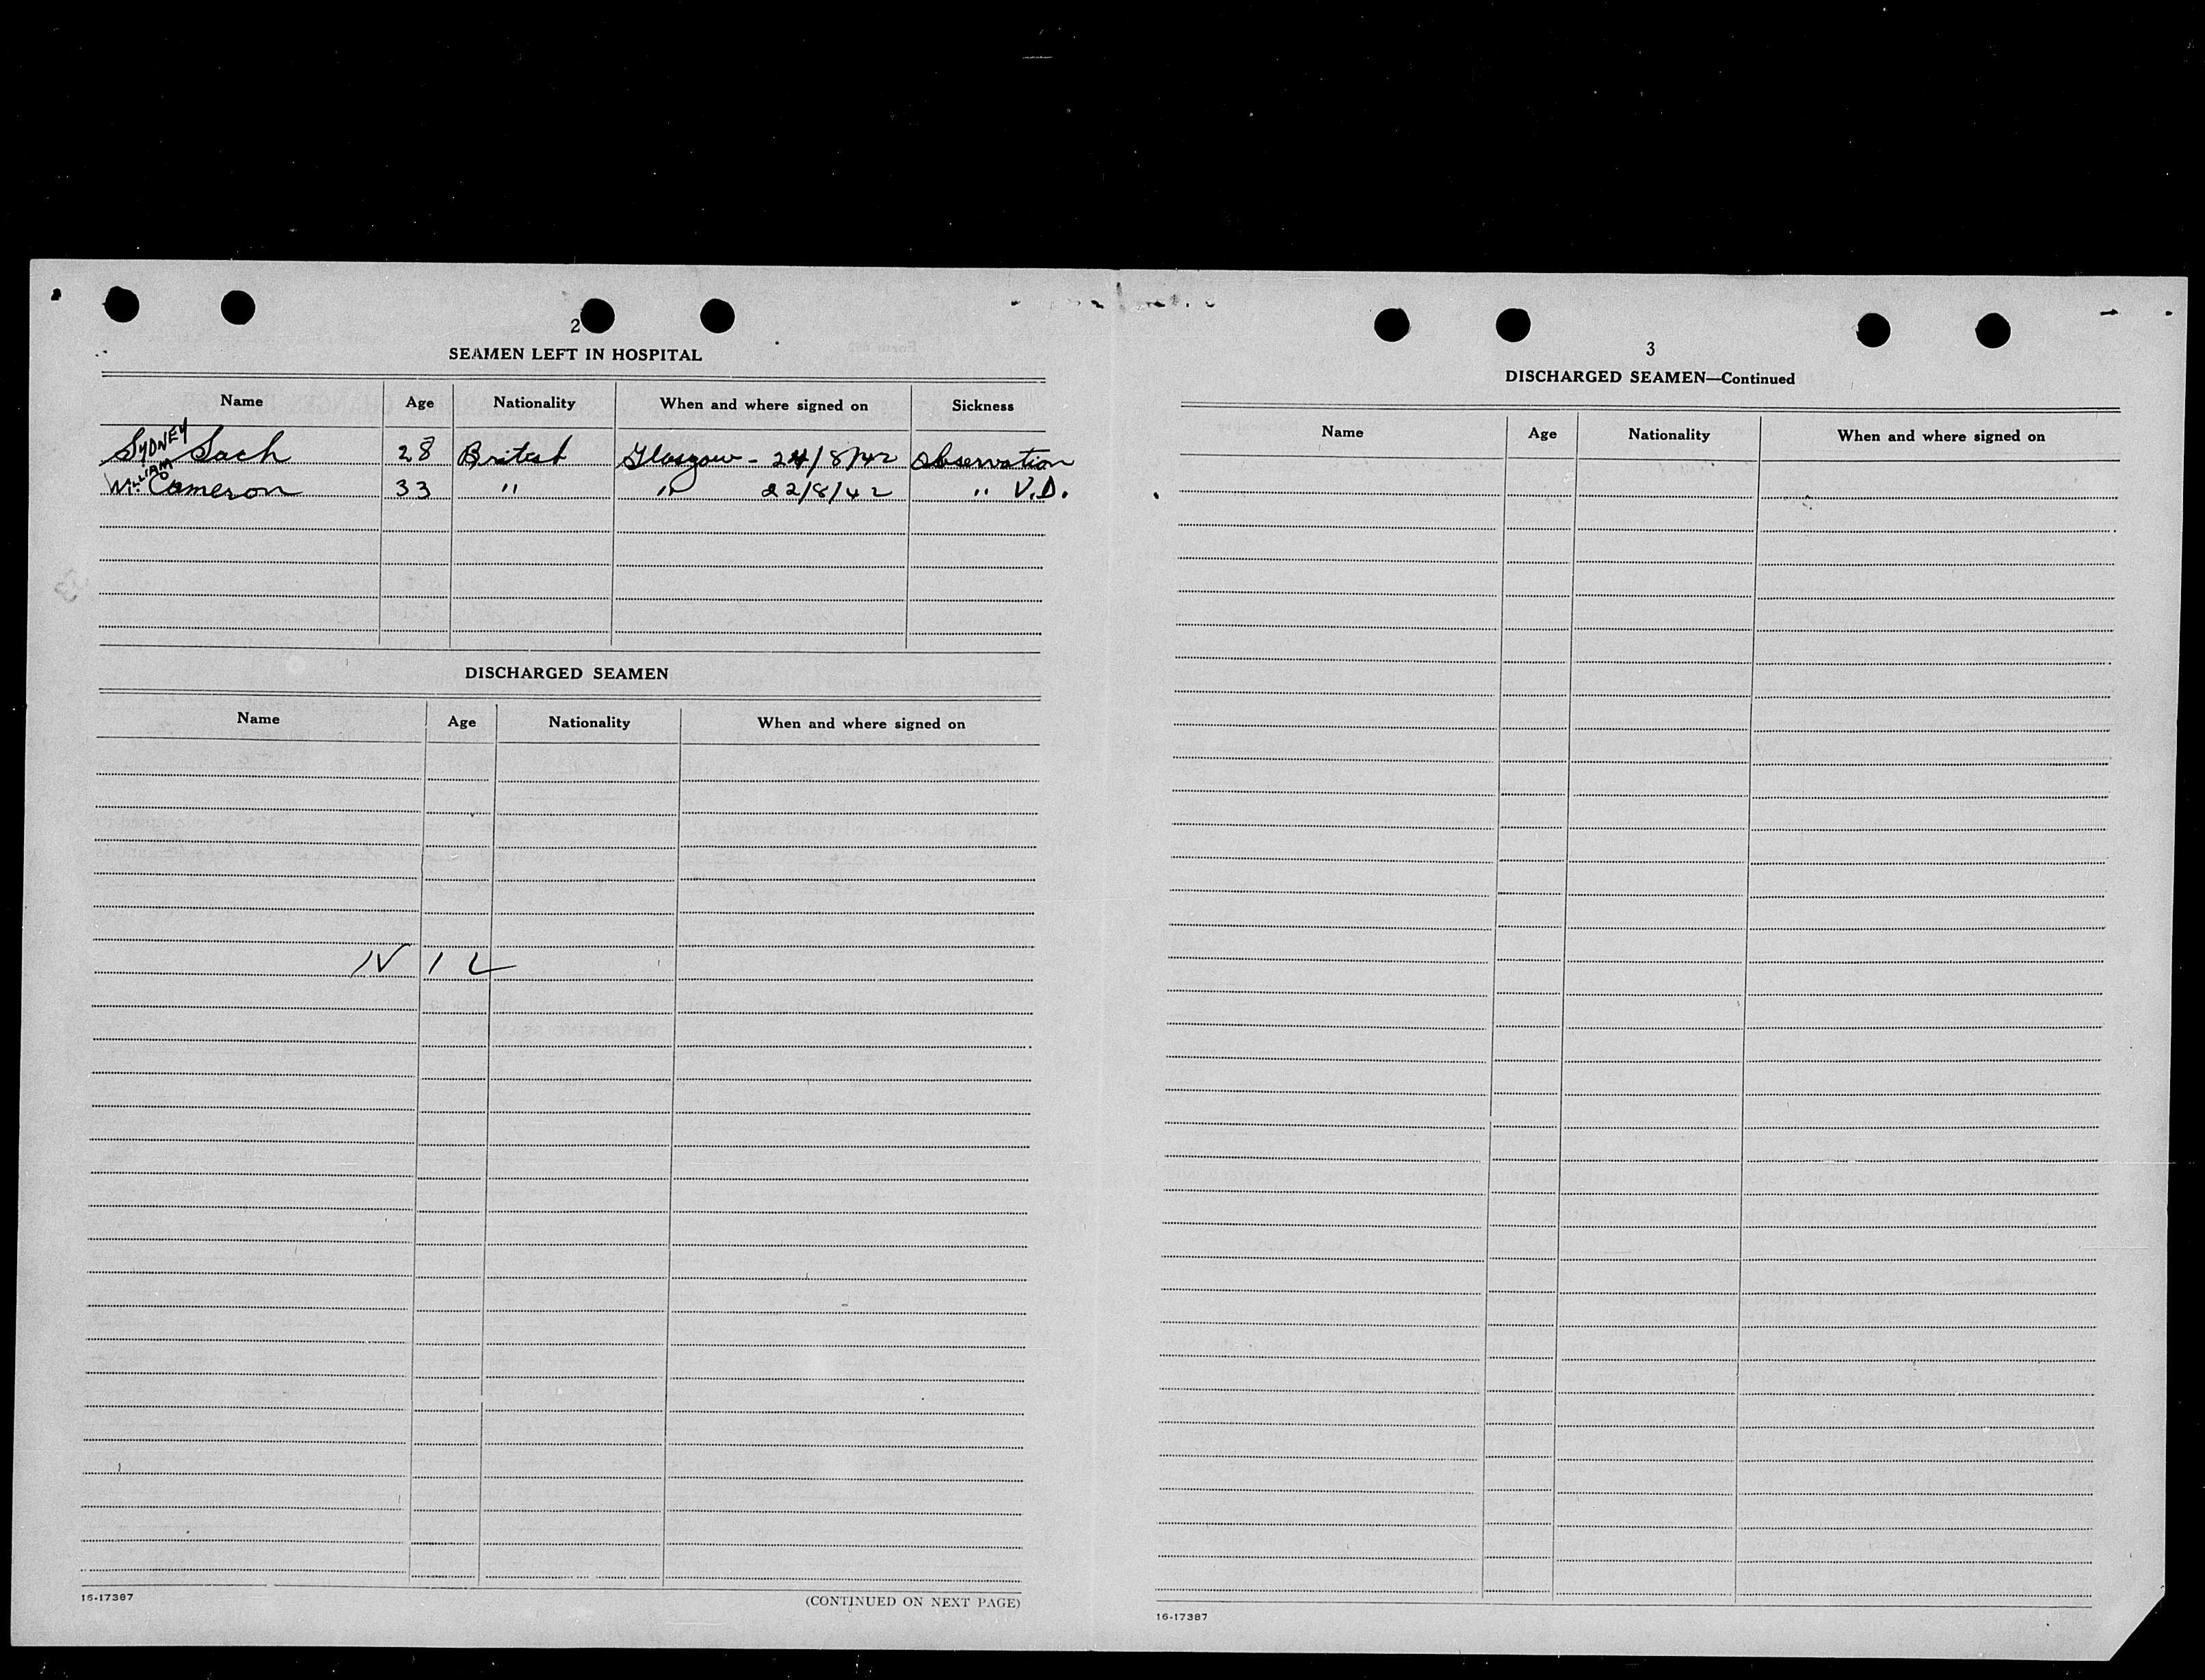 2
SEAMEN LEFT IN HOSPITAL
Name Age Nationality When and where signed on Sickness
SYDNEY
S. Sach 28 British Glasgow - 24/8/42 Observation
WILLIAM
Wm. Cameron 33 " " 22/8/42 " V.D.
DISCHARGED SEAMEN
Name Age Nationality When and where signed on
NIL
16-17387
(CONTINUED ON NEXT PAGE)
3
DISCHARGED SEAMEN—Continued
Name Age Nationality When and where signed on
16-17387